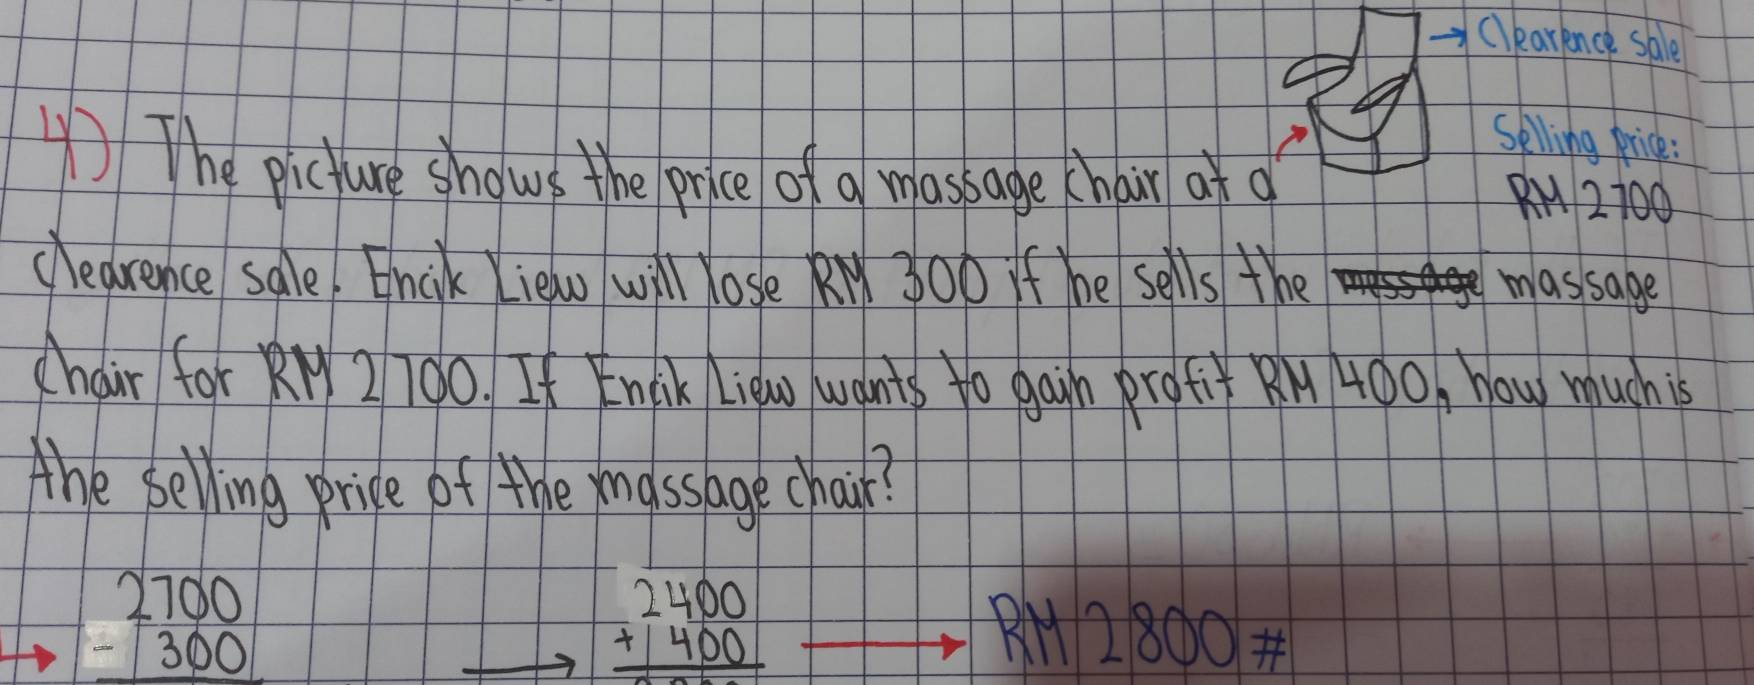 → Clearence sale
Selling price:
RM 2700
4) The picture shows the price of a massage chair at a
clearence sale. Encik Liew will lose RM 300 if he sells the massage
chair for RM 2700. If Encik Liew wants to gain profit RM 400, how much is
the selling price of the massage chair?
2700 2400
→ - 300 → + 400 → RM 2800 #